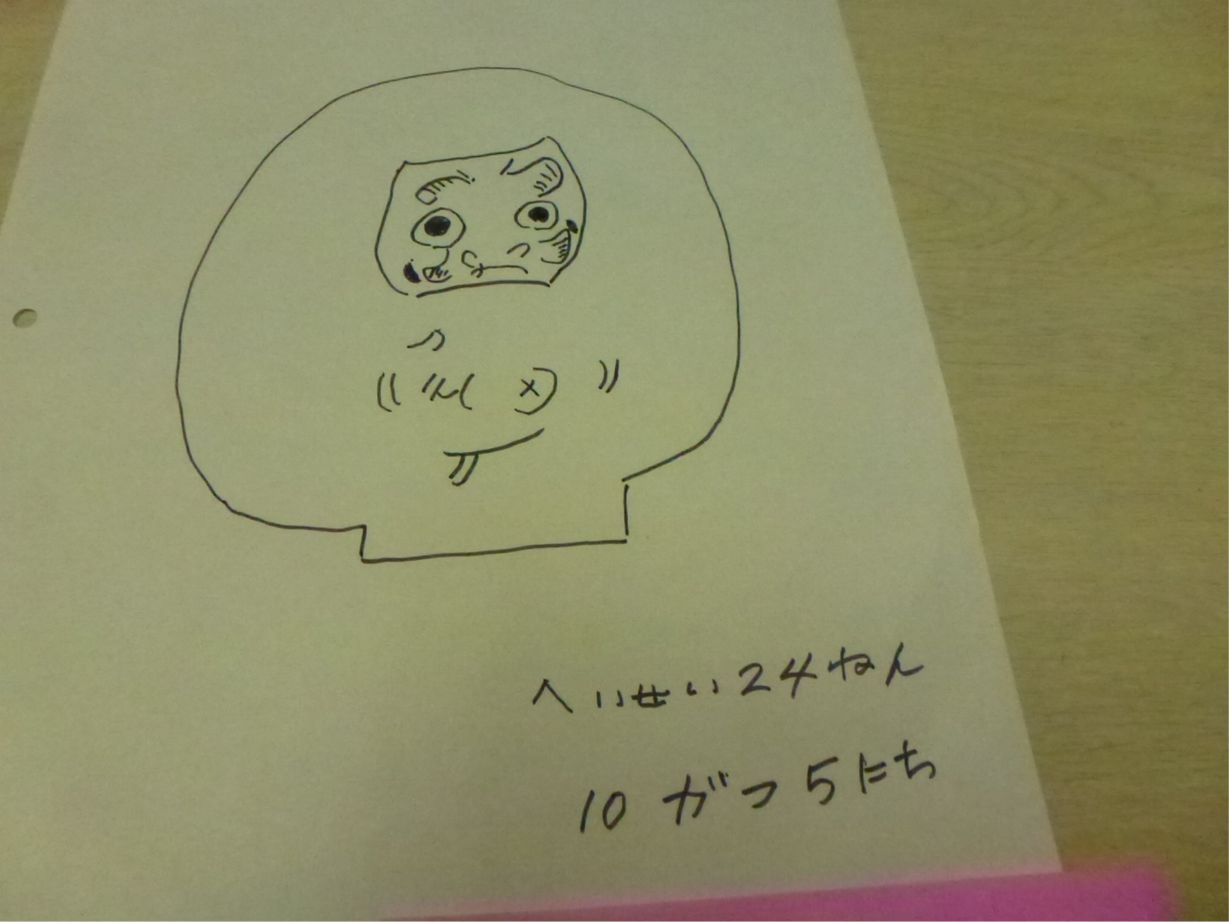 へいせい24ねん
10がつ5にち